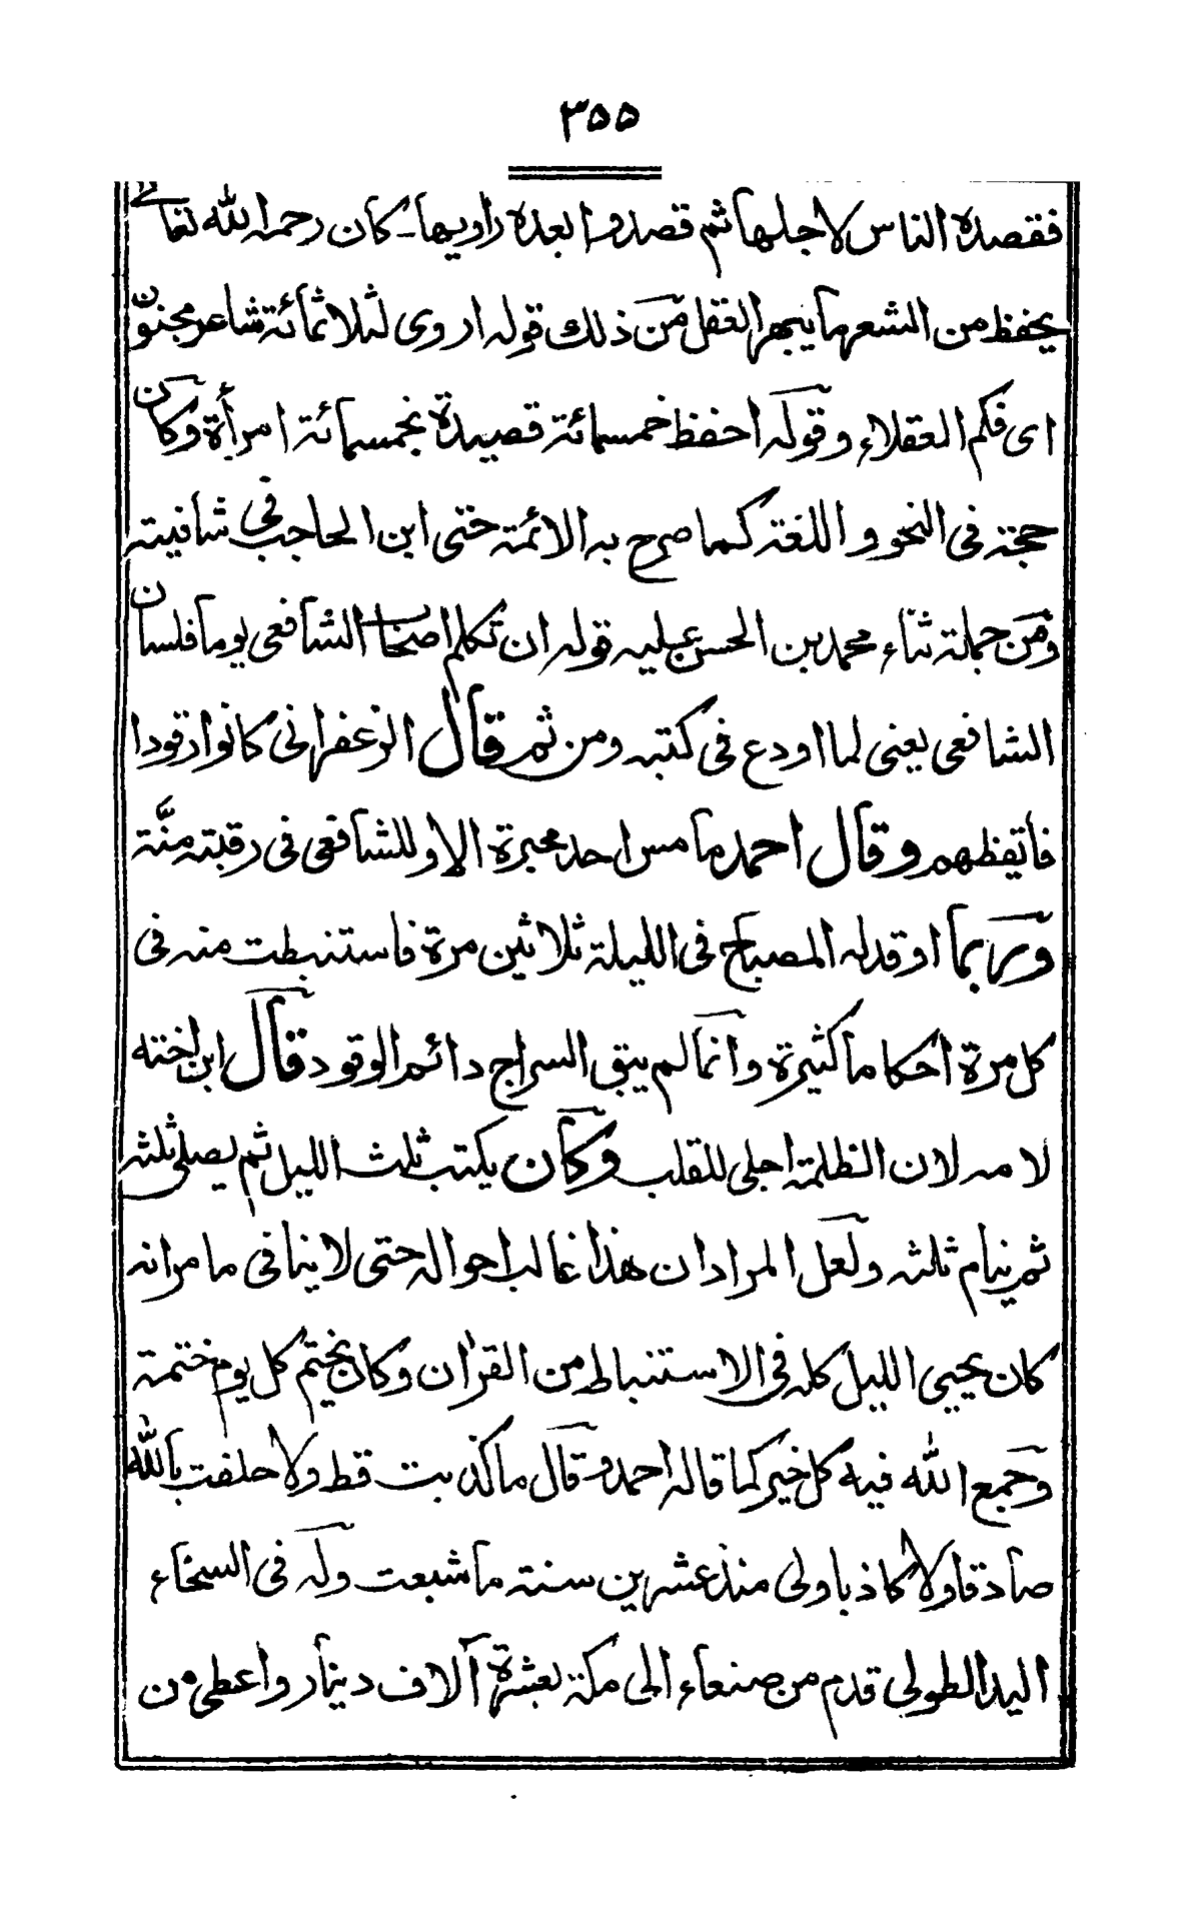 ٣٥٥
فقصده الناس لاجلها ثم قصدوا بعده راويها ـ كان رحمه الله تعالى
يحفظ من الشعر ما يبهر العقل من ذلك قوله اروى لثلاثمائة شاعر مجنون
اى فكم العقلاء وقوله احفظ خمسمائة قصيدة بخمسمائة امرأة وكان
حجة فى النحو واللغة كما صرح به الائمة حتى ابن الحاجب فى شافيته
ومن جملة ثناء محمد بن الحسن عليه قوله ان تكلم اصحاب الشافعى يوما فلسان
الشافعى يعنى لما اودع فى كتبه ومن ثم قال الزعفرانى كانوا رقودا
فأيقظهم وقال احمد ما مس احد محبرة الا وللشافعى فى رقبته منّة
وربما اوقد له المصباح فى الليلة ثلاثين مرة فاستنبطت منه فى
كل مرة احكاما كثيرة وانما لم يبق السراج دائم الوقود قال ابن اخته
لامه لان الظلمة اجلى للقلب وكان يكتب ثلث الليل ثم يصلى ثلثه
ثم ينام ثلثه ولعل المراد ان هذا غالب احواله حتى لا ينافى ما مر انه
كان يحيى الليل كله فى الاستنباط من القرآن وكان يختم كل يوم ختمة
وجمع الله فيه كل خير كما قاله احمد وقال ما كذبت قط ولا حلفت بالله
صادقا ولا كاذبا ولى منذ عشرين سنة ما شبعت وله فى السخاء
اليد الطولى قدم من صنعاء الى مكة بعشرة آلاف دينار واعطى من